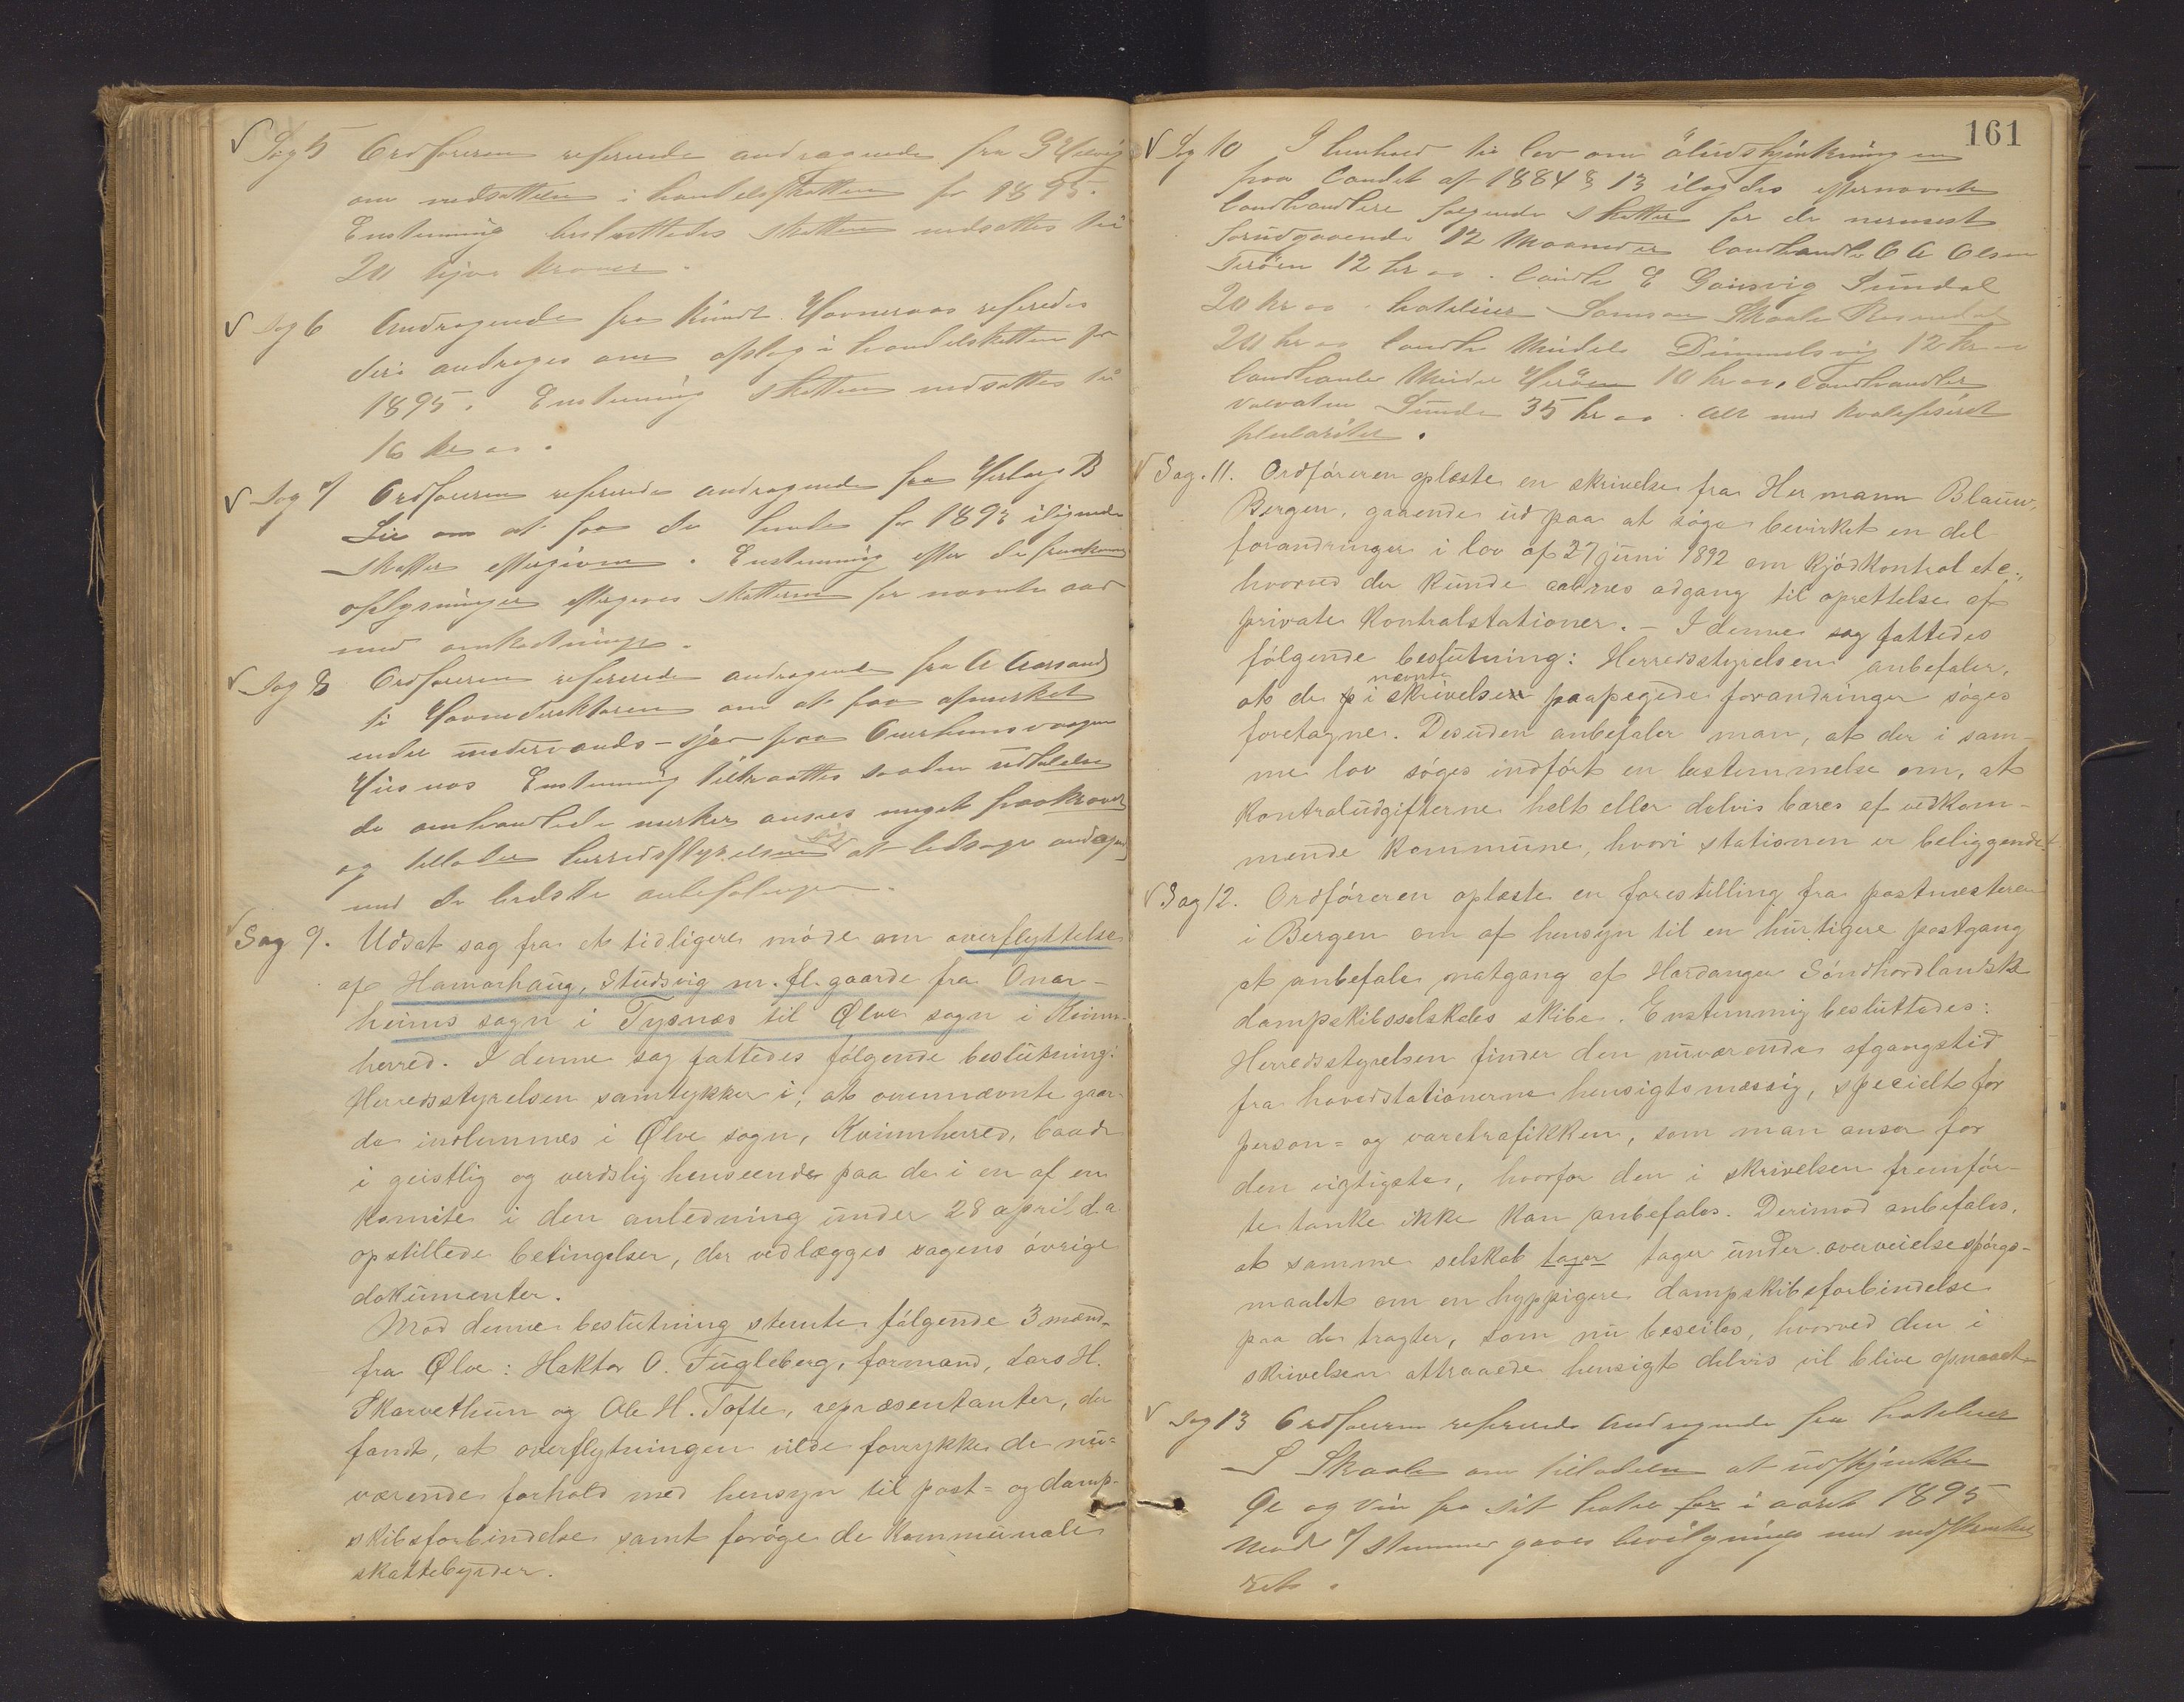 Sag 5 Ordføreren refererede andragende fra G Helvig
om nedsættelse i handelsskatten for 1895.
Enstemmig besluttedes skatten nedsattes til
20 tyve kroner.
Sag 6 Andragende fra Knut Havneraas referedes
deri androges om afslag i handelsskatten for
1895. Enstemmig skatten nedsattes til
16 kr oo.
Sag 7 Ordføreren refererede andragende fra Herborg B
Lie om at faa de hende for 1893 ilignede
skatter eftergivne. Enstemmig efter de fremkomne
oplysninger eftergives skatterne for nævnte aar
med omkostninger.
Sag 8 Ordføreren refererede andragende fra A Aarsand
til Havnedirektøren om at faa afmerket
endel undervands-sjær paa
Husnes Enstemmig tiltraadtes saadan udtalelse
de omhandlede merker ansees meget paakrævet
og tillader herredsstyrelsen sig at ledsage andrag
med de bedste anbefalinger.
Sag 9. Udsat sag fra et tidligere møde om overflyttelse
af Hamarhaug, Studsvig m. fl. gaarde fra Onar-
heims sagn i Tysnæs til Ølve sagn i Kvinn-
herred. I denne sag fattedes følgende beslutning:
Herredsstyrelsen samtykker i, at ovennævnte gaar-
de indlemmes i Ølve sogn, Kvinnherred, baade
i geistlig og verdslig henseende paa de i en af en
komite i den anledning under 28 april d. a
opstillede betingelser, der vedlægges sagens øvrige
dokumenter.
Mod denne beslutning stemte følgende 3 mænd
fra Ølve: Haktor O. Fugleberg, formand, Lars H.
Skarvethun og Ole H. Tofte, repræsentanter, der
fandt, at overflytningen vilde forrykke de nu-
værende forhold med hensyn til post- og damp-
skibsforbindelse samt forøge de kommunale
skattebyrder.
161
Sag 10 I henhold til lov om öludskjænkningen
paa landet af 1884 § 13 ilagdes efternævnte
landhandlere følgende skatter for de nærmest
forudgaaende 12 Maaneder landhandler C A Olsen
Terøen 12 kr oo. landh E Gausvig Sundal
20 kr oo hotelier Samson Skaale Rosendal
20 kr oo landh Mindel Dimmelsvig 12 kr oo
landhandler Herøen 10 kr oo, landhandler
Valvatne Sunde 35 kr oo. Alt med kvalefiseret
pluralitet.
Sag. 11. Ordføreren oplæste en skrivelse fra Hermann Blauw,
Bergen, gaaende ud paa at søge bevirket en del
forandringer i lov af 27 juni 1892 om Kjødkontrol etc.,
hvorved der kunde aabnes adgang til oprettelse af
private kontrolstationer. - I denne sag fattedes
følgende beslutning: Herredsstyrelsen anbefaler,
at de p i nævnte skrivelse paapegede forandringer søges
foretagne. Desuden anbefaler man, at der i sam-
me lov søges indført en bestemmelse om, at
kontroludgifterne helt eller delvis bæres af vedkom-
mende kommune, hvori stationen er beliggende.
Sag 12. Ordføreren oplæste en forestilling fra postmesteren
i Bergen om af hensyn til en hurtigere postgang
at anbefale natgang af Hardanger Søndhordlandske
dampskibsselskabs skibe. Enstemmig besluttedes:
Herredsstyrelsen finder den nuværende afgangstid
fra hovedstationerne hensigtsmæssig, specielt for
person- og varetrafikken, som man anser for
den vigtigste, hvorfor den i skrivelsen fremfør-
te tanke ikke kan anbefales. Derimod anbefales,
at samme selskab tager tager under overveielse spørgs-
maalet om en hyppigere dampskibsforbindelse
paa de tragter, som nu beseiles, hvorved den i
skrivelsen attraaede hensigt delvis vil blive opnaaet.
Sag 13 Ordføreren refererede andragende fra hotelier
S Skaale om tilladelse at udskjænke
Øl og vin fra sit hotel for i aaret 1895
Mod 7 stemmer gaves bevilgning med indskrænket
ret.